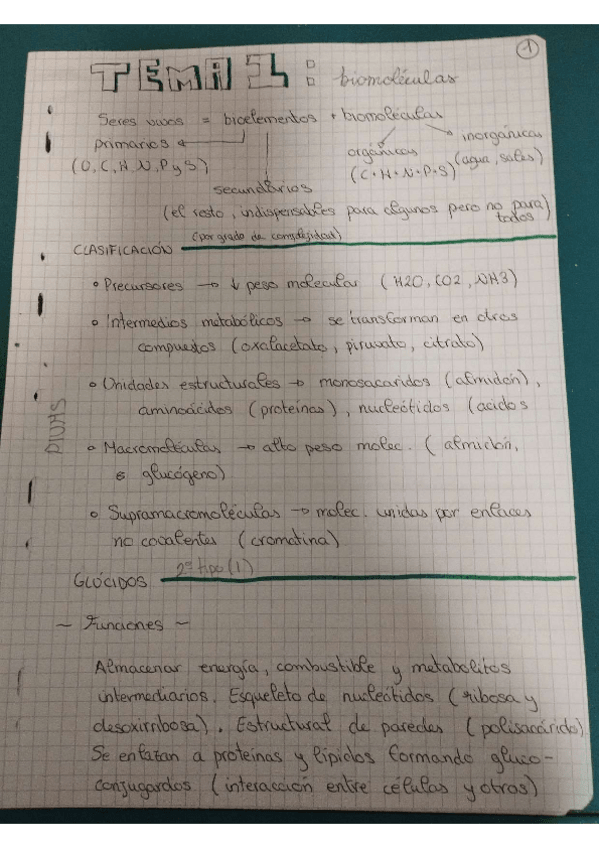 1
TEMA 1: biomoléculas
Seres vivos = bioelementos + biomoléculas
primarios
(O, C, H, N, P y S)
orgánicas
(C·H·N·P·S)
inorgánicas
(agua, sales)
secundários
(el resto, indispensables para algunos pero no para
todos)
CLASIFICACIÓN (por grado de complejidad)
Precursores → ↓ peso molecular (H2O, CO2, NH3)
Intermedios metabólicos → se transforman en otros
compuestos (oxalacetato, piruvato, citrato)
Unidades estructurales → monosacaridos (almidón),
aminoácidos (proteínas), nucleótidos (acidos
Macromoléculas → alto peso molec. (almidón,
glucógeno)
Supramacromoléculas → molec. unidas por enlaces
no covalentes (cromatina)
GLÚCIDOS 2º tipo (1)
~ Funciones ~
Almacenar energía, combustible y metabolitos
intermediarios. Esqueleto de nucleótidos (ribosa y
desoxirribosa). Estructural de paredes (polisacárido)
Se enlazan a proteínas y lípidos formando gluco-
conjugardos (interacción entre células y otras)